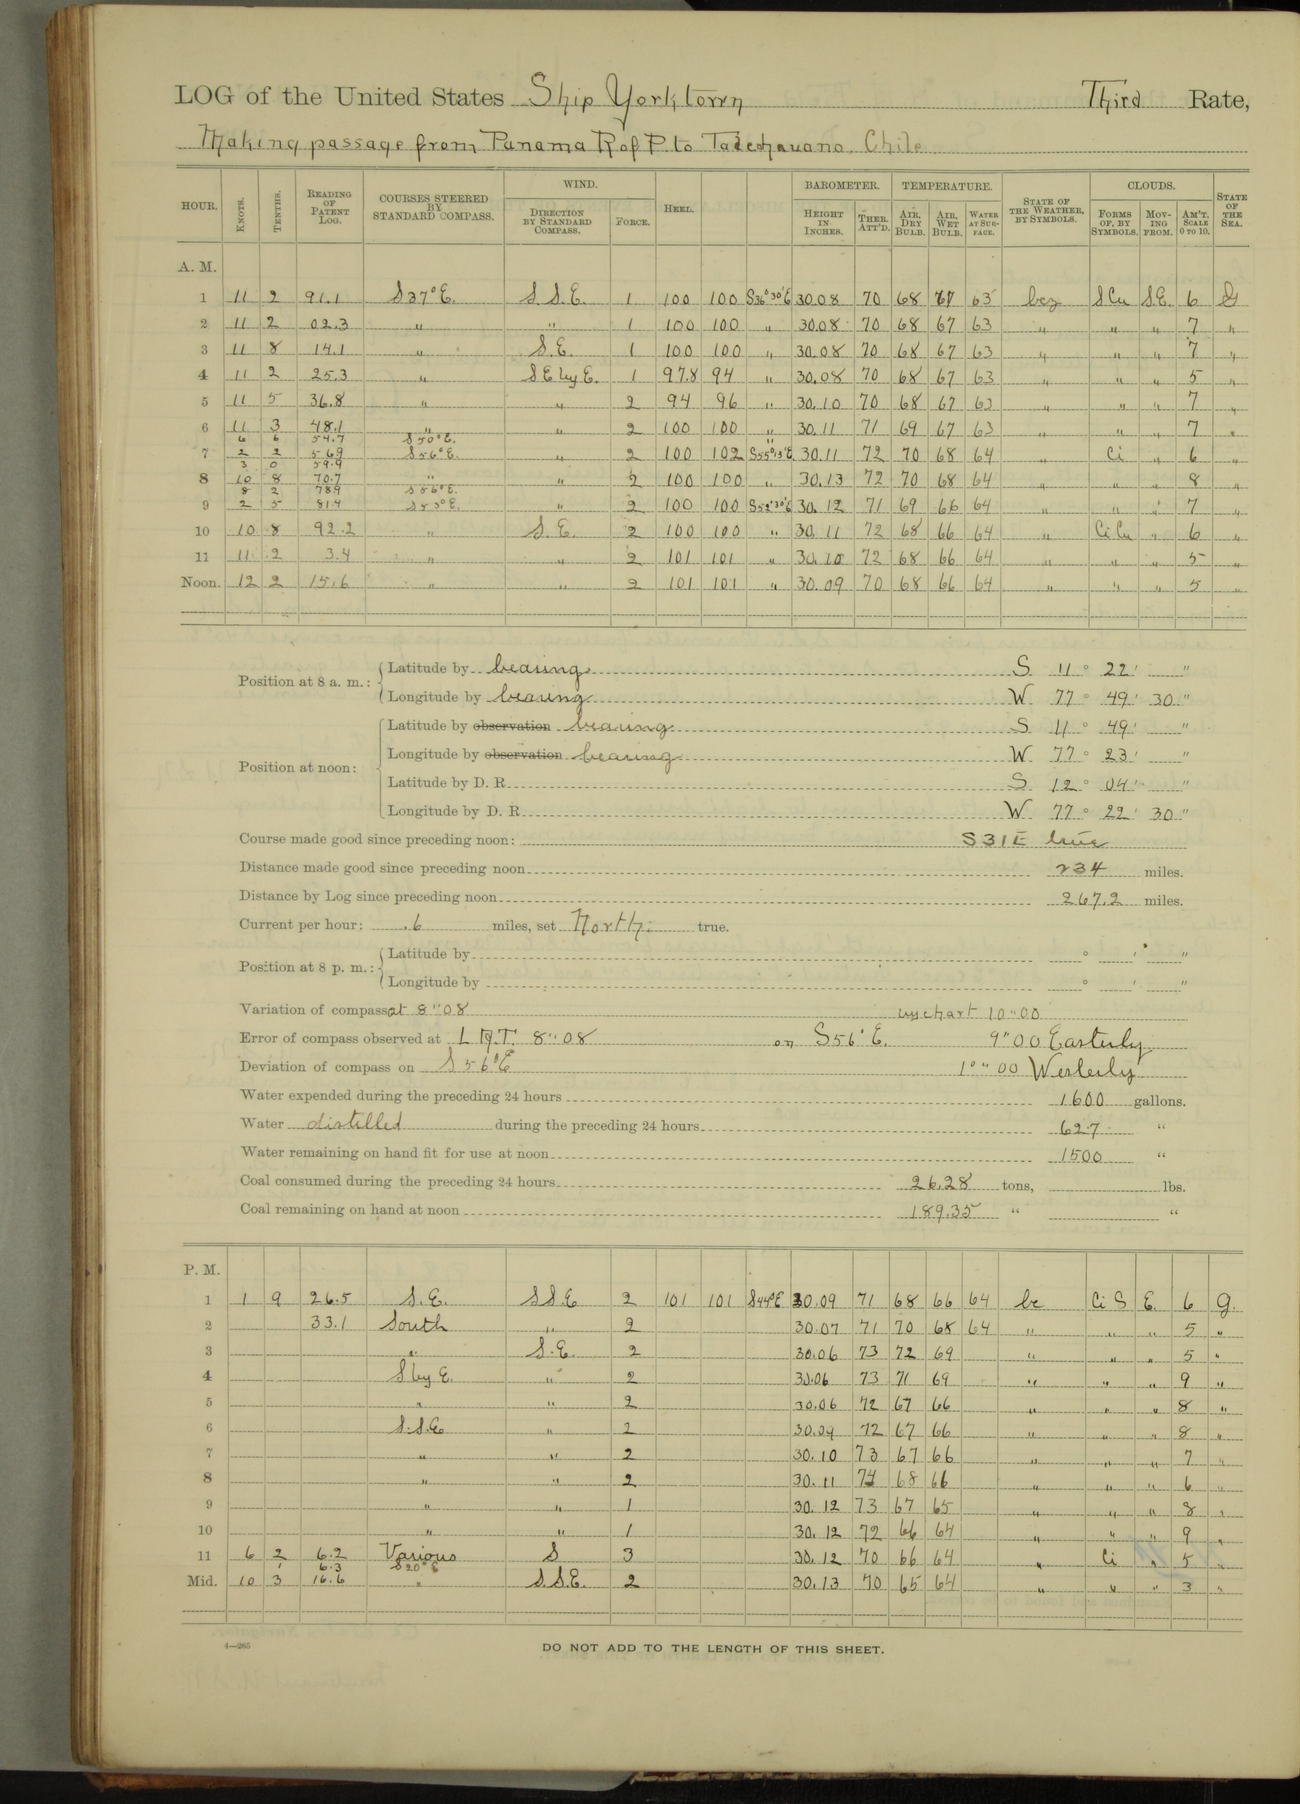 LOG of the United States Ship Yorktown Third Rate,
Making passage from Panama R of P. to Talcahuano Chile
HOUR. KNOTS. TENTHS. READING OF PATENT LOG. COURSES STEERED BY STANDARD COMPASS. WIND. DIRECTION BY STANDARD COMPASS. FORCE. HEEL. BAROMETER. HEIGHT IN INCHES. THER. ATT'D. TEMPERATURE. AIR, DRY BULB. AIR, WET BULB. WATER AT SURFACE. STATE OF THE WEATHER, BY SYMBOLS. CLOUDS. FORMS OF, BY SYMBOLS. MOVING FROM. AM'T. SCALE 0 TO 10. STATE OF THE SEA.
A. M.
1 11 2 91.1 S37°E. S.S.E. 1 100 100 S36°30'E 30.08 70 68 67 63 bcz S Cu S.E. 6
2 11 2 02.3 " " 1 100 100 " 30.08 70 68 67 63 " " " 7 "
3 11 8 14.1 " S.E. 1 100 100 " 30.08 70 68 67 63 " " " 7 "
4 11 2 25.3 " S E by E. 1 97.8 94 " 30.08 70 68 67 63 " " " 5 "
5 11 5 36.8 " " 2 94 96 " 30.10 70 68 67 63 " " " 7 "
6 11 3 48.1 " " 2 100 100 " 30.11 71 69 67 63 " " " 7 "
6 6 54.7 S50°E. "
7 2 2 56.9 S56°E. " 2 100 102 S55°15'E 30.11 72 70 68 64 " Ci " 6 "
3 0 59.9
8 10 8 70.7 " " 2 100 100 " 30.13 72 70 68 64 " " " 8 "
8 2 78.9 S56°E.
9 2 5 81.4 S53°E. " 2 100 100 S52°30'E 30.12 71 69 66 64 " " " 7 "
10 10 8 92.2 " S.E. 2 100 100 " 30.11 72 68 66 64 " Ci Cu " 6 "
11 11 2 3.4 " " 2 101 101 " 30.10 72 68 66 64 " " " 5 "
Noon. 12 2 15.6 " " 2 101 101 " 30.09 70 68 66 64 " " " 5 "
Position at 8 a. m.: Latitude by bearing S 11° 22' "
Longitude by bearing W 77° 49' 30"
Position at noon: Latitude by observation bearing S 11° 49' "
Longitude by observation bearing W 77° 23' "
Latitude by D. R. S 12° 04' "
Longitude by D. R. W 77° 22' 30"
Course made good since preceding noon: S31E true
Distance made good since preceding noon 234 miles.
Distance by Log since preceding noon 267.2 miles.
Current per hour: .6 miles, set North. true.
Position at 8 p. m.: Latitude by ° ' "
Longitude by ° ' "
Variation of compass at 8"08 by chart 10"00
Error of compass observed at L.A.T. 8"08 on S56°E. 9"00 Easterly
Deviation of compass on S56°E 1°"00 Westerly
Water expended during the preceding 24 hours 1600 gallons.
Water distilled during the preceding 24 hours 627 "
Water remaining on hand fit for use at noon 1500 "
Coal consumed during the preceding 24 hours 26.28 tons, lbs.
Coal remaining on hand at noon 189.35 " "
P. M.
1 1 9 26.5 S.E. SS.E 2 101 101 S44°E 30.09 71 68 66 64 bc Ci S E. 6 G.
2 33.1 South " 2 30.07 71 70 68 64 " " " 5 "
3 " S.E. 2 30.06 73 72 69 " " " 5 "
4 S by E. " 2 30.06 73 71 69 " " " 9 "
5 " " 2 30.06 72 67 66 " " " 8 "
6 S.S.E " 2 30.09 72 67 66 " " " 8 "
7 " " 2 30.10 73 67 66 " " " 7 "
8 " " 2 30.11 74 68 66 " " " 6 "
9 " " 1 30.12 73 67 65 " " " 8 "
10 " " 1 30.12 72 66 64 " " " 9 "
11 6 2 6.2 Various S 3 30.12 70 66 64 " Ci " 5 "
1 6.3 S20°E
Mid. 10 3 16.6 " S.S.E. 2 30.13 70 65 64 " " " 3 "
4—265 DO NOT ADD TO THE LENGTH OF THIS SHEET.